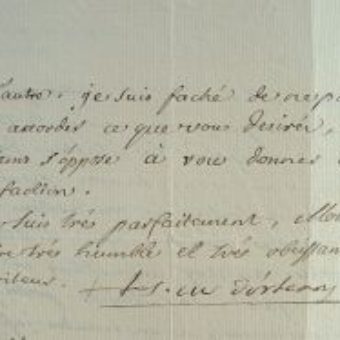 l'autre. je suis faché de ne po
accorder ce que vous desirés,
s'oppose à vous donner
faction.
suis très parfaitement, Mon
très humble et très obéissan